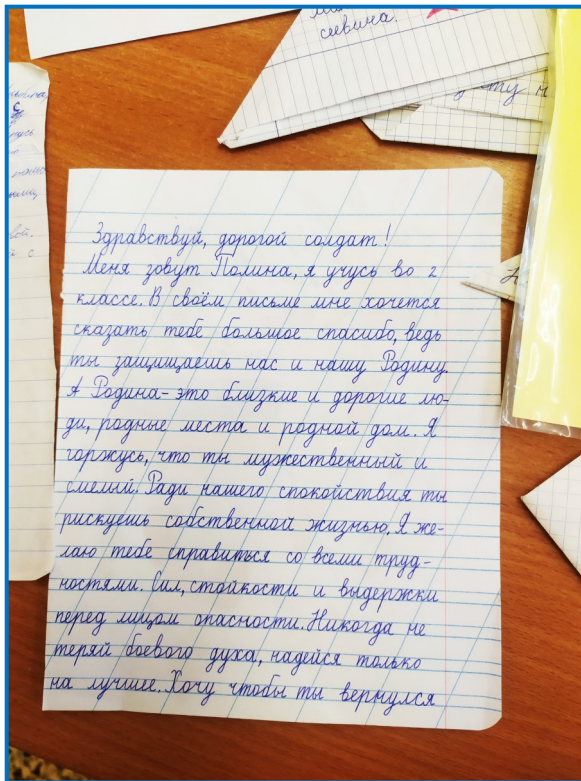 сивича.
ту н
с
Здравствуй, дорогой солдат!
Меня зовут Полина, я учусь во 2
классе. В своём письме мне хочется
сказать тебе большое спасибо, ведь
ты защищаешь нас и нашу Родину.
А Родина- это близкие и дорогие лю-
ди, родные места и родной дом. Я
горжусь, что ты мужественный и
смелый. Ради нашего спокойствия ты
рискуешь собственной жизнью. Я же-
лаю тебе справиться со всеми труд-
ностями. Сил, стойкости и выдержки
перед лицом опасности. Никогда не
теряй боевого духа, надейся только
на лучшее. Хочу чтобы ты вернулся